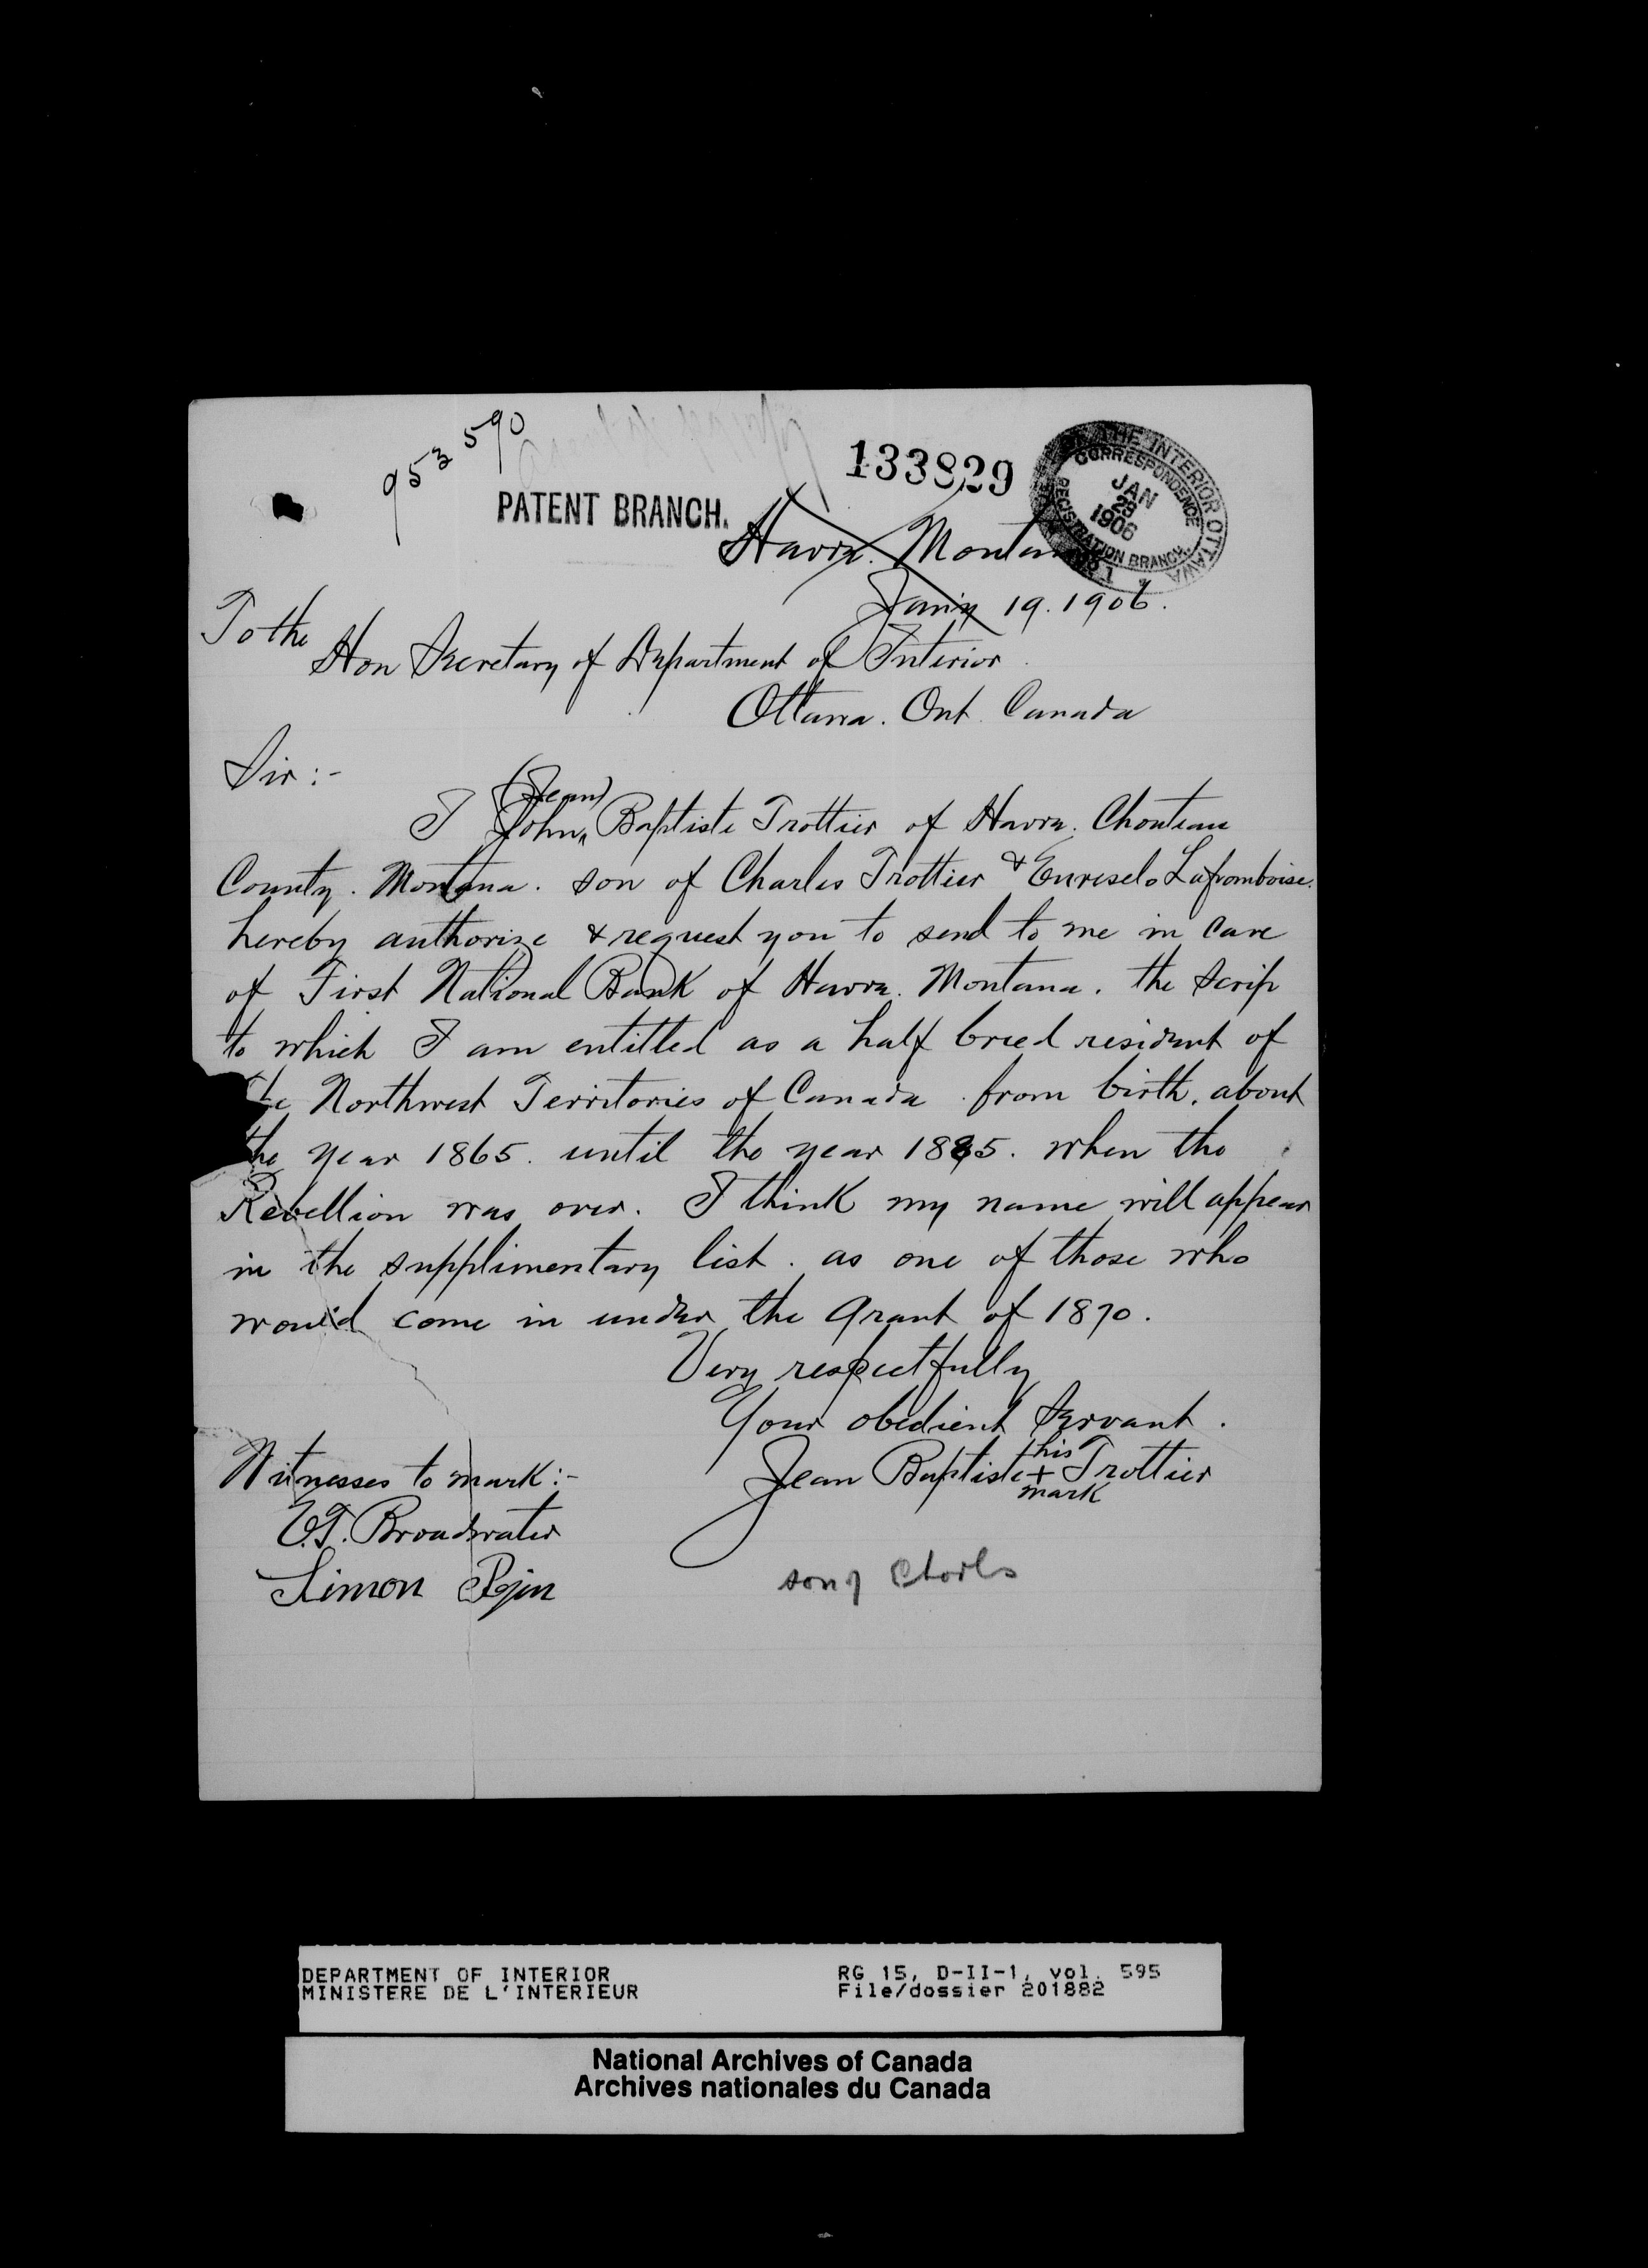 953590
133829
PATENT BRANCH.
THE INTERIOR OTTAWA
CORRESPONDENCE
JAN
29
1906
REGISTRATION BRANCH
Havre. Montana
Jan'y 19. 1906.
To the
Hon Secretary of Department of Interior
Ottawa. Ont. Canada
Sir:-
(Jean)
I John Baptiste Trottier of Havre. Chouteau
County. Montana. son of Charles Trottier & Enreselo Laframboise.
hereby authorize & request you to send to me in care
of First National Bank of Havre. Montana. the Scrip
to which I am entitled as a half breed resident of
the Northwest Territories of Canada from birth. about
the year 1865. until the year 1885. when the
Rebellion was over. I think my name will appear
in the supplimentary list. as one of those who
would come in under the grant of 1870.
Very respectfully
Your obedient Servant.
his
Jean Baptiste + Trottier
mark
Witnesses to mark:-
Broadwater
Simon Pepin
son of Charles
DEPARTMENT OF INTERIOR RG 15, D-II-1, vol. 595
MINISTERE DE L'INTERIEUR File/dossier 201882
National Archives of Canada
Archives nationales du Canada